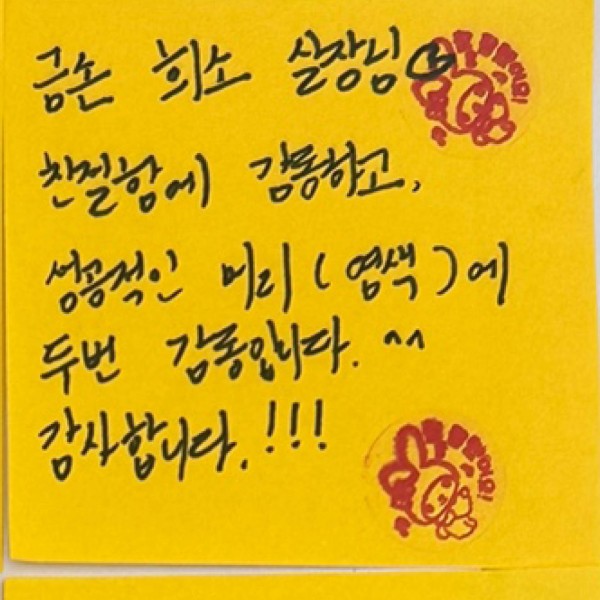 금손 희소 실장님
친절함에 감동하고,
성공적인 머리(염색)에
두번 감동입니다. ^^
감사합니다.!!!